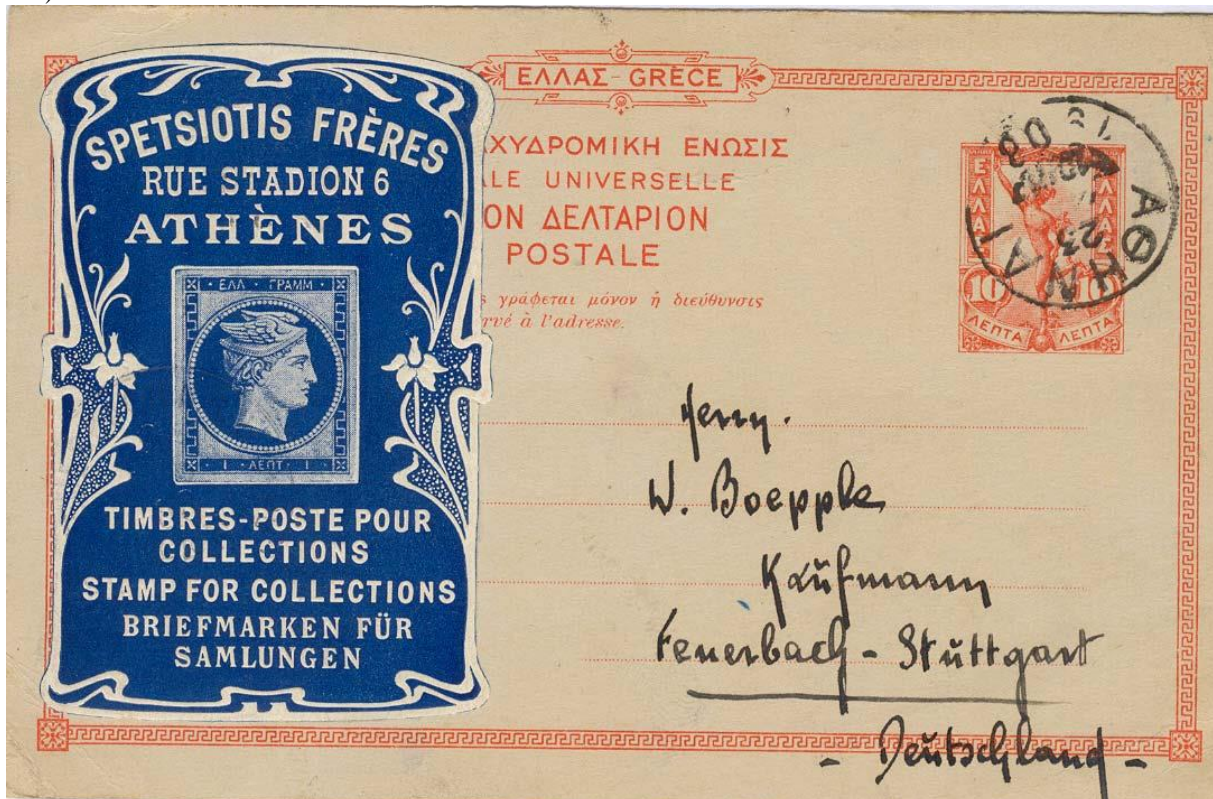 SPETSIOTIS FRÈRES
RUE STADION 6
ATHÈNES
ΕΛΛ · ΓΡΑΜΜ
1 · ΛΕΠΤ · 1
TIMBRES-POSTE POUR
COLLECTIONS
STAMP FOR COLLECTIONS
BRIEFMARKEN FÜR
SAMLUNGEN
ΕΛΛΑΣ - GRÈCE
ΧΥΔΡΟΜΙΚΗ ΕΝΩΣΙΣ
LE UNIVERSELLE
ΟΝ ΔΕΛΤΑΡΙΟΝ
POSTALE
ς γράφεται μόνον ἡ διεύθυνσις
rvé à l'adresse.
ΕΛΛΑΣ
ΕΛΛΑΣ
10 10
ΛΕΠΤΑ ΛΕΠΤΑ
ΑΘΗΝΑΙ
23
Herrn.
W. Boepple
Kaufmann
Feuerbach - Stuttgart
- Deutschland -